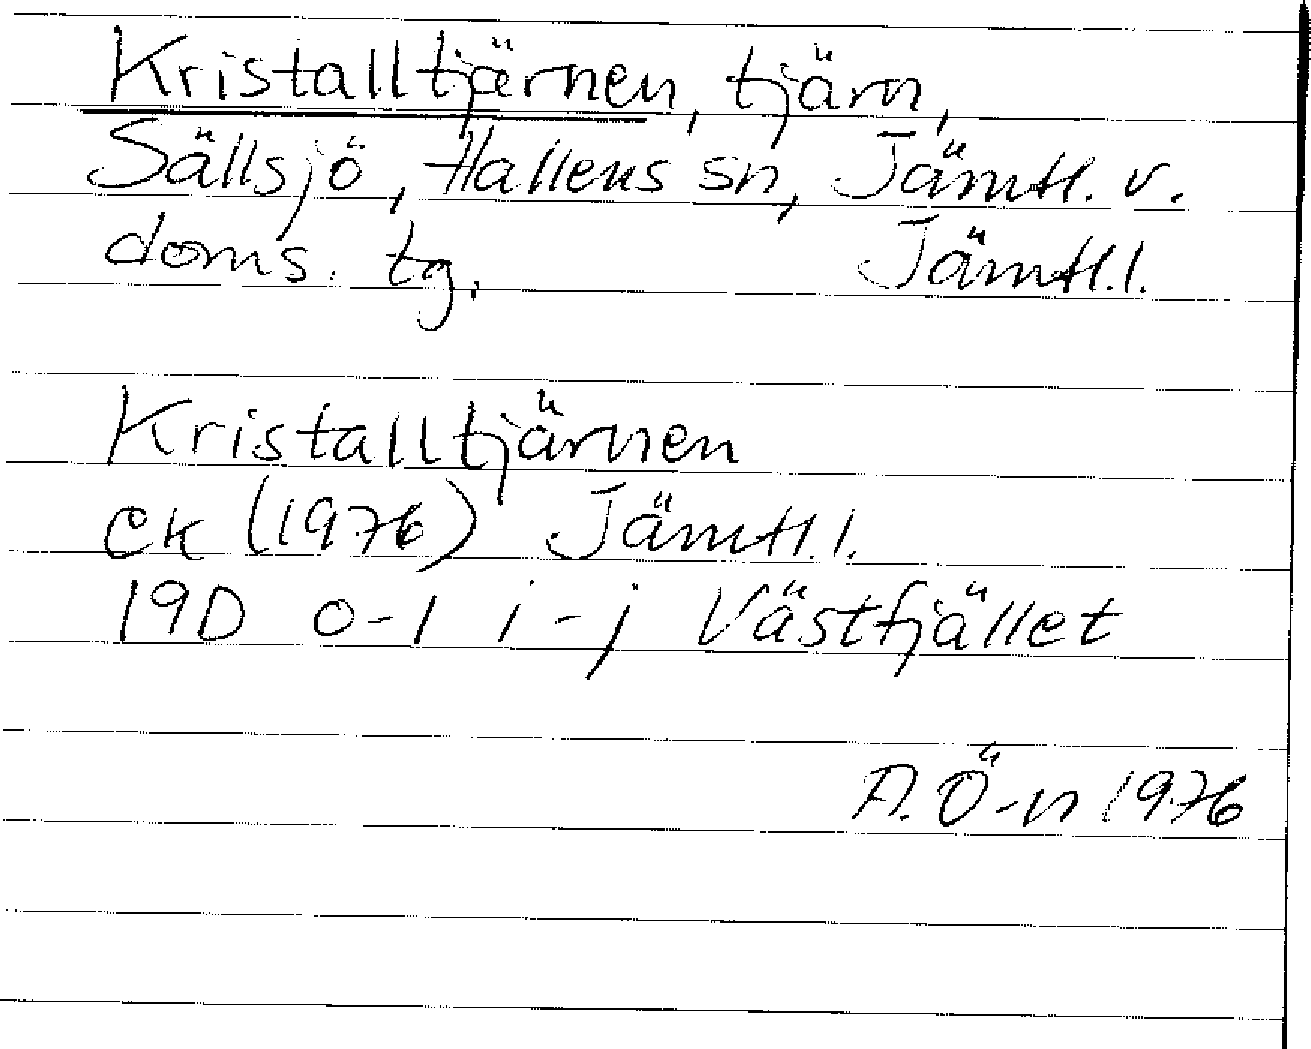 Kristalltjärnen, tjärn,
Sällsjö, Hallens sn, Jämtl. v.
doms. tg. Jämtl.l.
Kristalltjärnen
ek (1976) Jämtl.l.
19D 0-1 i-j Västfjället
A.Ö-n 1976